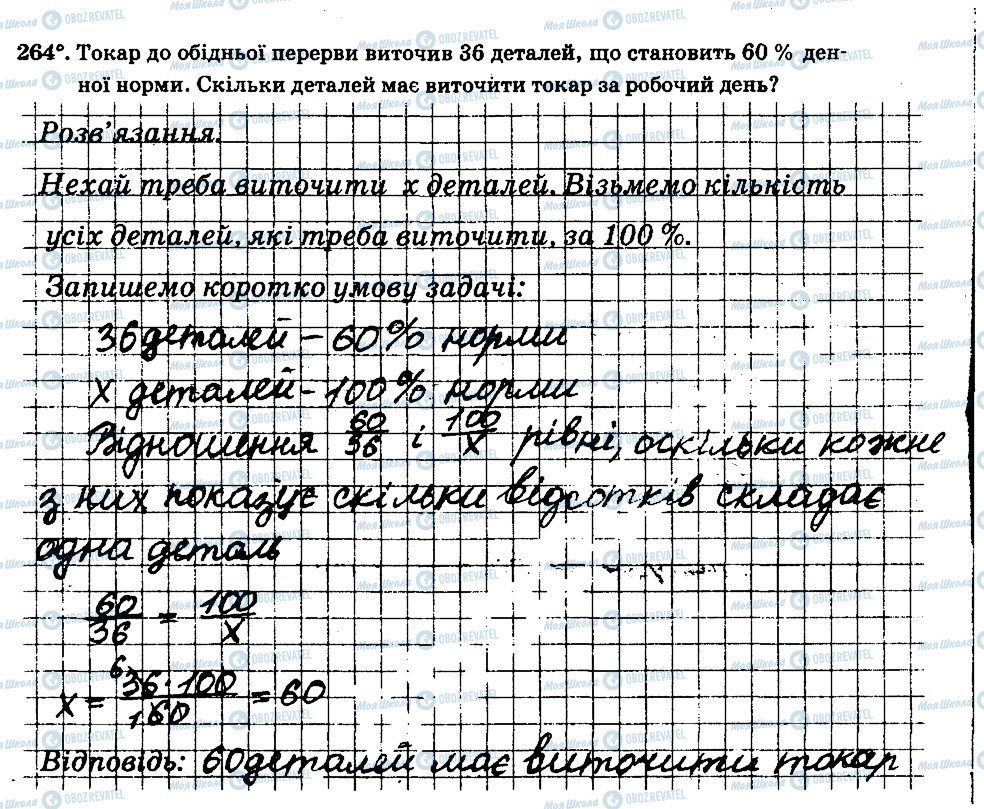 264°. Токар до обідньої перерви виточив 36 деталей, що становить 60 % ден-
ної норми. Скільки деталей має виточити токар за робочий день?
Розв'язання.
Нехай треба виточити x деталей. Візьмемо кількість
усіх деталей, які треба виточити, за 100 %.
Запишемо коротко умову задачі:
36 деталей – 60% норми
x деталей – 100% норми
Відношення 60/36 і 100/x рівні, оскільки кожне
з них показує скільки відсотків складає
одна деталь
60/36 = 100/x
x = 36·100/60 = 60
Відповідь: 60 деталей має виточити токар